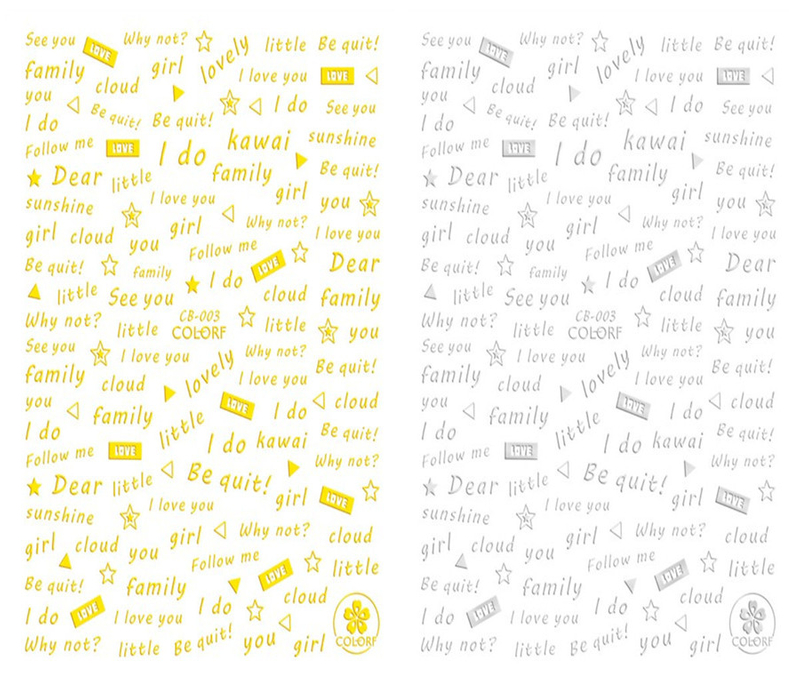 See you LOVE Why not? lovely little Be quit!
family cloud girl I love you LOVE
you Be quit! Be quit! I do See you
I do kawai sunshine
Follow me LOVE I do family Be quit!
Dear little I love you girl you
sunshine girl Why not?
girl cloud you Follow me I love you
Be quit! family I do LOVE Dear
little See you cloud family
Why not? little CB-003 little you
COLORF
See you I love you lovely Why not? Be quit!
family cloud I love you
you family little LOVE I do cloud
I do I do kawai Be quit!
Follow me LOVE Be quit! Why not?
Dear little I love you girl LOVE
sunshine girl Why not? cloud
girl cloud you Follow me little
Be quit! family LOVE cloud
I do LOVE I love you I do
Why not? little Be quit! you girl COLORF
See you LOVE Why not? lovely little Be quit!
family cloud girl I love you LOVE
you Be quit! Be quit! I do See you
I do kawai sunshine
Follow me LOVE I do family Be quit!
Dear little I love you girl you
sunshine girl Why not?
girl cloud you Follow me I love you
Be quit! family I do LOVE Dear
little See you cloud family
Why not? little CB-003 little you
COLORF
See you I love you lovely Why not? Be quit!
family cloud I love you
you family little LOVE I do cloud
I do I do kawai Be quit!
Follow me LOVE Be quit! Why not?
Dear little I love you girl LOVE
sunshine girl Why not? cloud
girl cloud you Follow me little
Be quit! family LOVE cloud
I do LOVE I love you I do
Why not? little Be quit! you girl COLORF